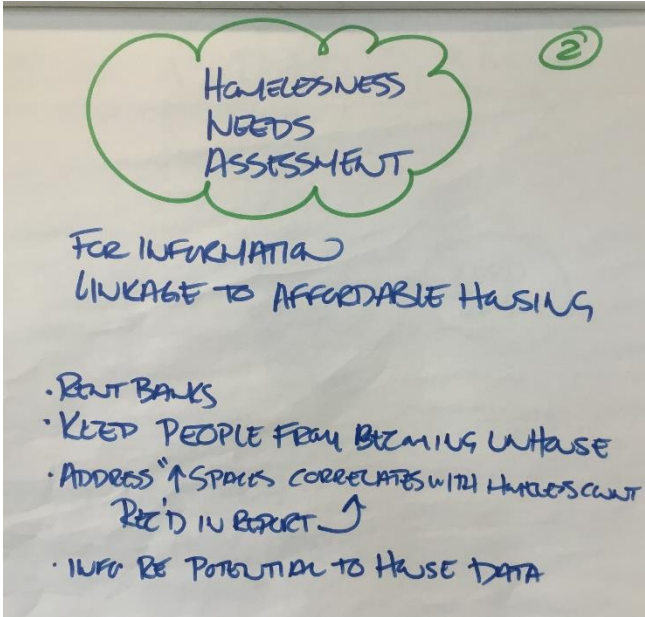 2
HOMELESNESS
NEEDS
ASSESSMENT
FOR INFORMATION
LINKAGE TO AFFORDABLE HOUSING
· RENT BANKS
· KEEP PEOPLE FROM BECOMING UNHOUSE
· ADDRESS "↑ SPACES CORRELATES WITH HOMELESS COUNT
REC'D IN REPORT
· INFO RE POTENTIAL TO HOUSE DATA